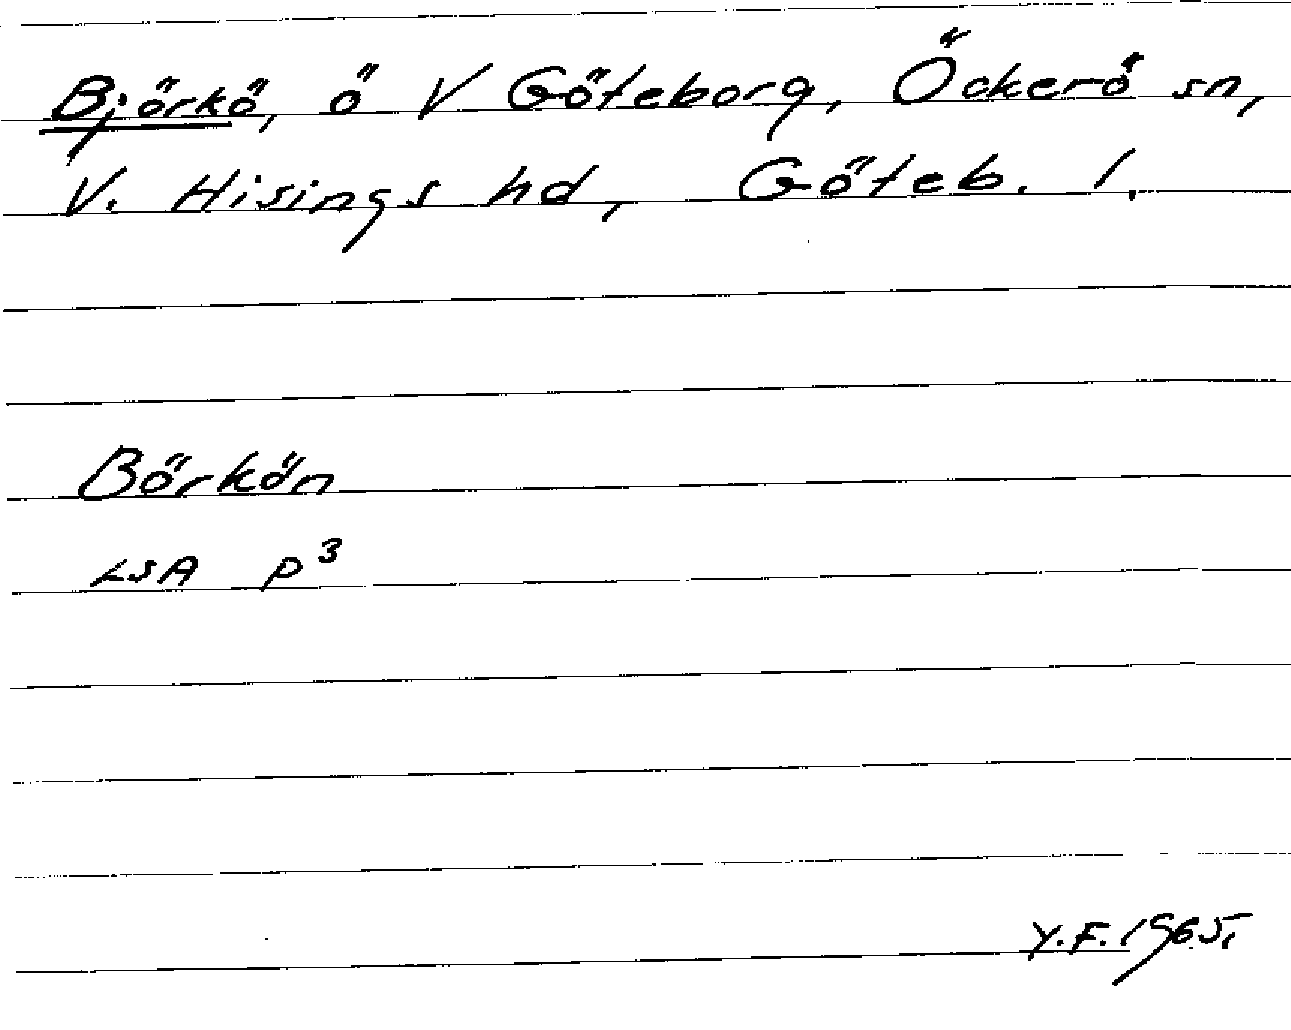 Björkö, ö V Göteborg, Öckerö sn,
V. Hisings hd, Göteb. l.
Börkön
LSA p³
Y.F. 1965.